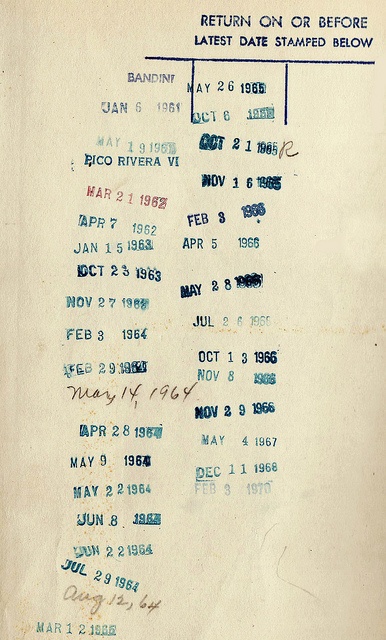 RETURN ON OR BEFORE
LATEST DATE STAMPED BELOW
BANDINI
JAN 6 1961
MAY 19 1961
PICO RIVERA VI
MAR 21 1962
APR 7 1962
JAN 15 1963
OCT 23 1963
NOV 27 1963
FEB 3 1964
FEB 29 1964
May, 14, 1964
APR 28 1964
MAY 9 1964
MAY 22 1964
JUN 8 1964
JUN 22 1964
JUL 29 1964
Aug 12, 64
MAR 12
MAY 26 1965
OCT 6 1965
OCT 21 1965 R
NOV 16 1965
FEB 3 1966
APR 5 1966
MAY 28 1966
JUL 26 1966
OCT 13 1966
NOV 8 1966
NOV 29 1966
MAY 4 1967
DEC 11 1968
FEB 3 1970